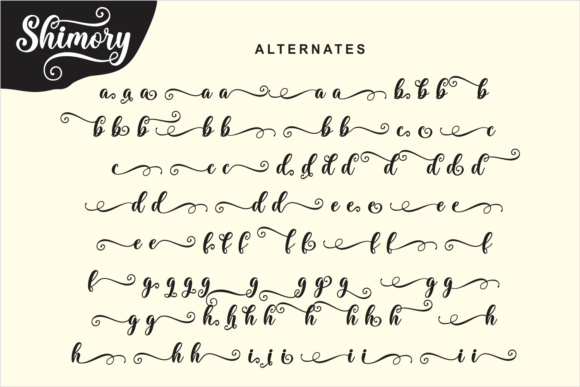 Shimory
ALTERNATES
a a a a a a a b b b b
b b b b b b b c c c
c c c d d d d d d d d
d d d d e e e e e
e e f f f f f f f f
f g g g g g g g g g g
g g h h h h h h h h h
h h h i i i i i i i